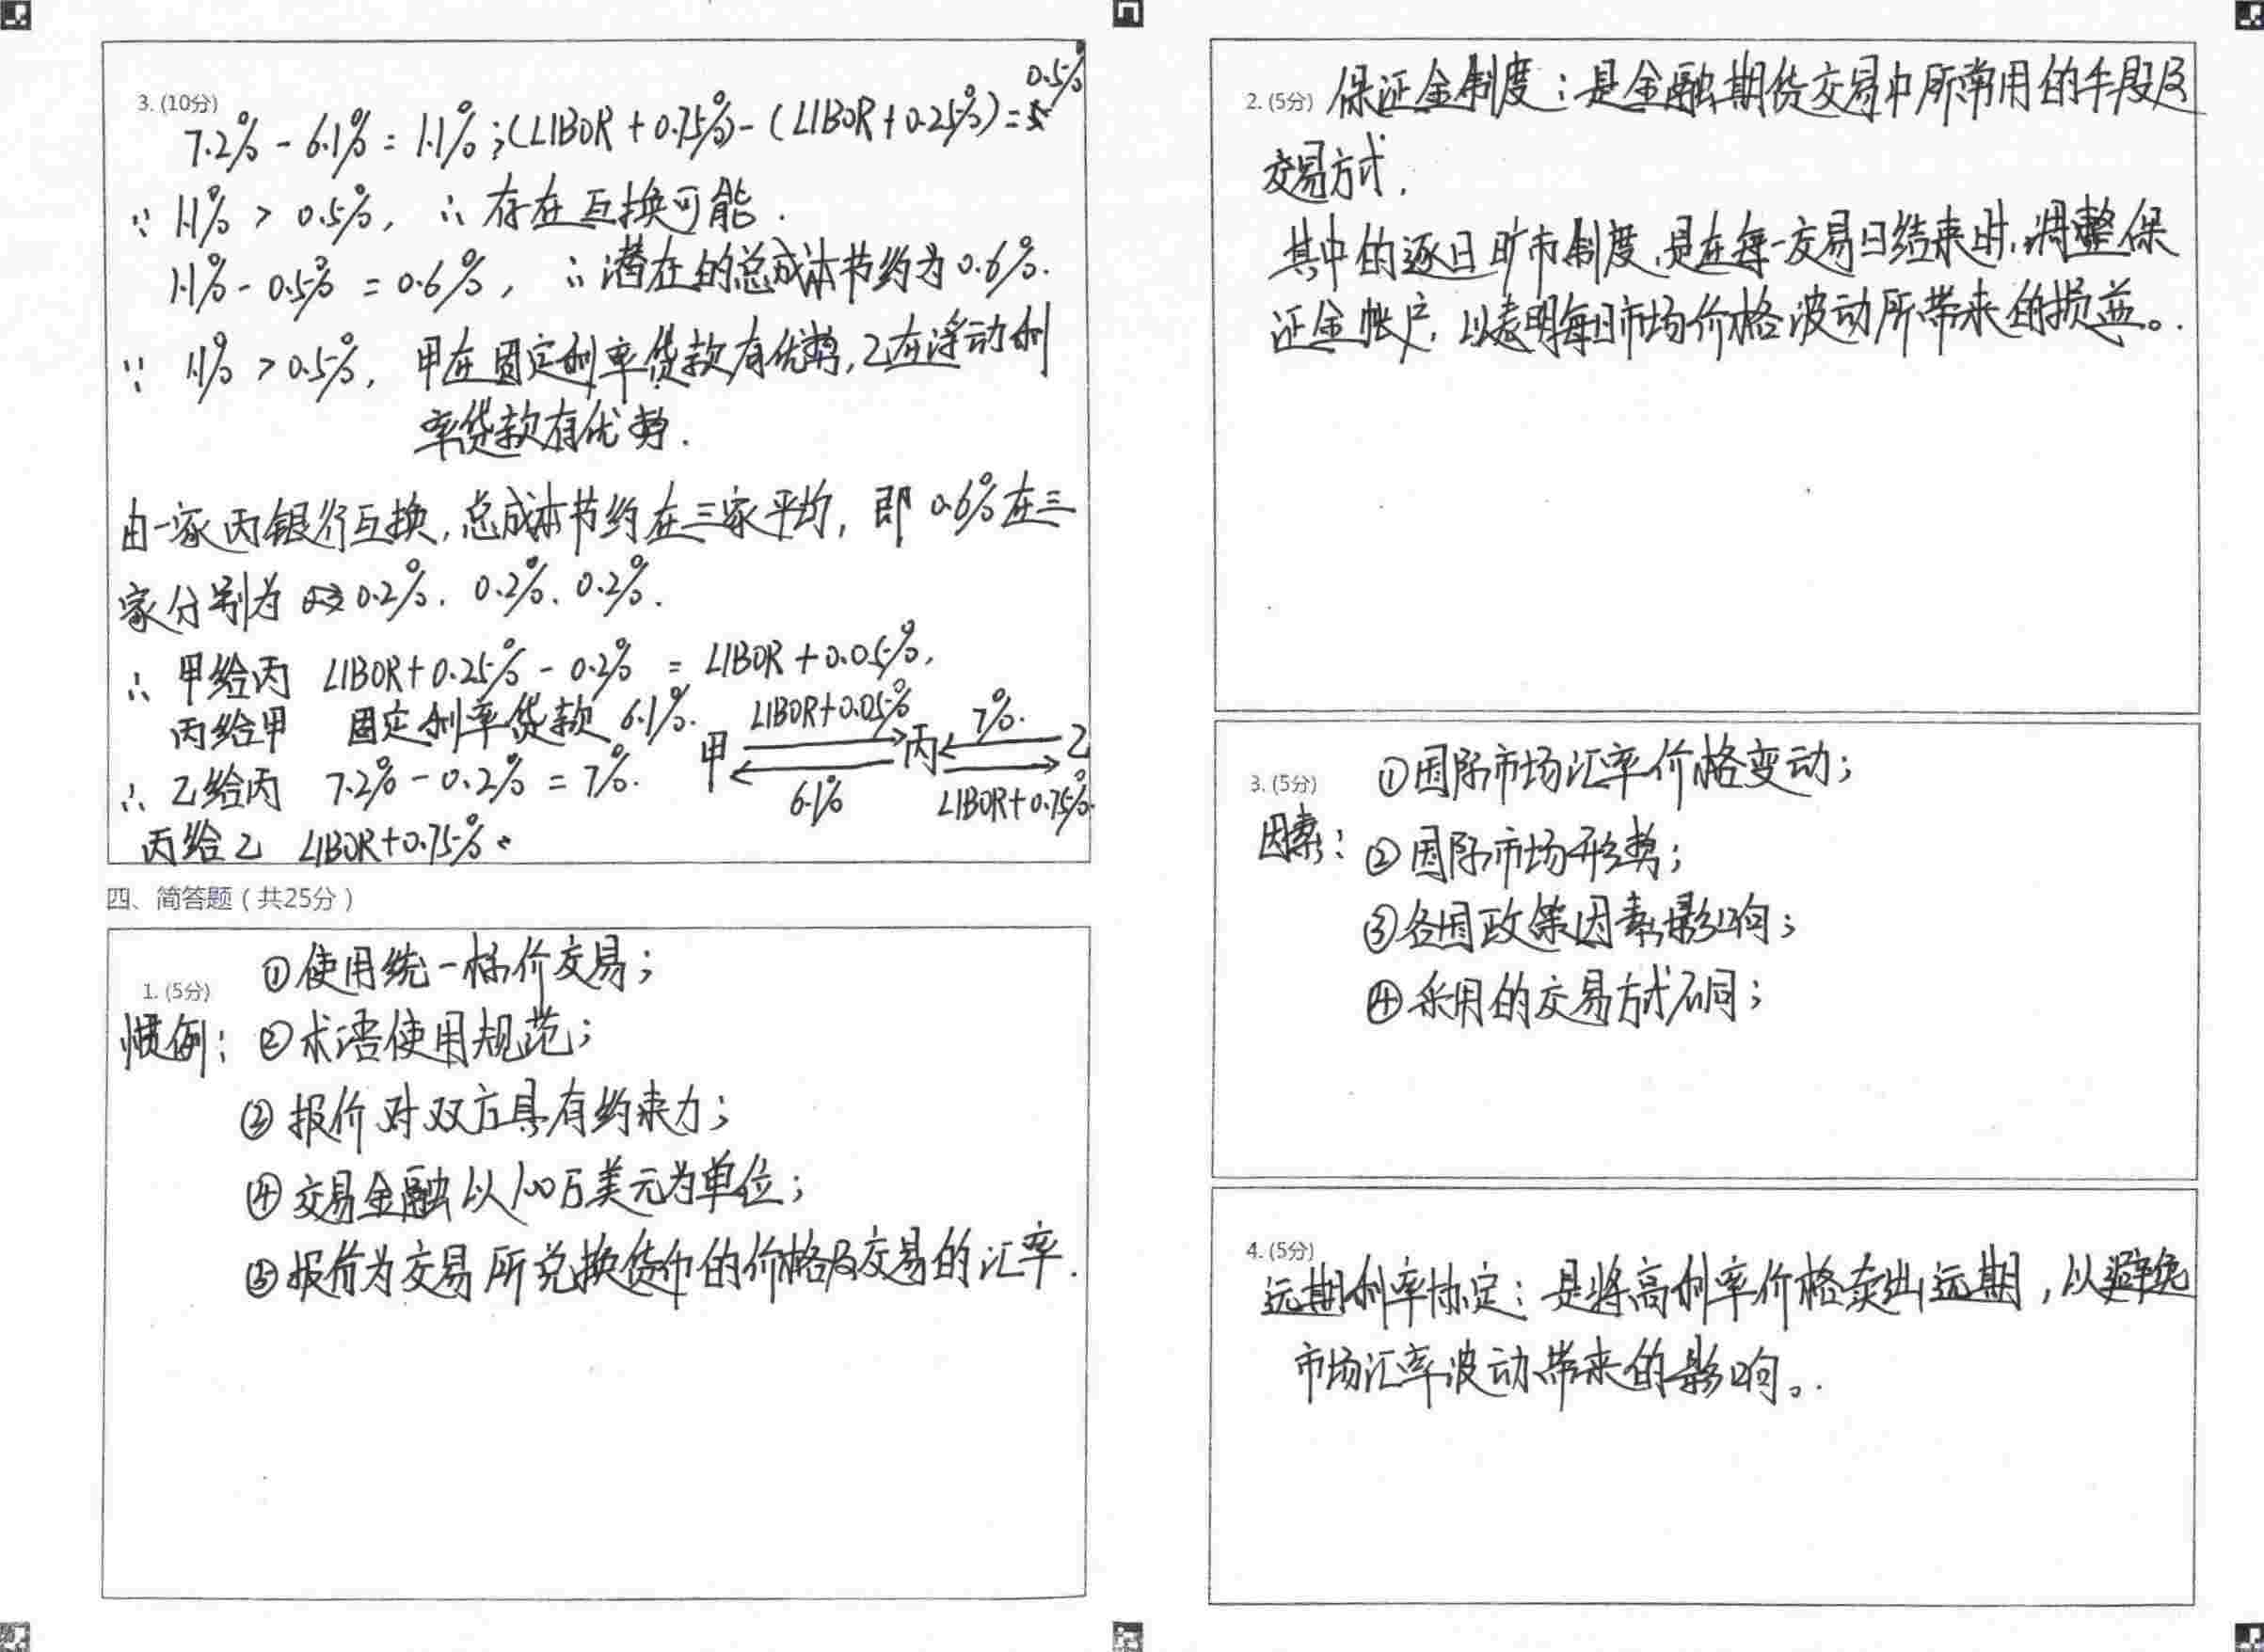 3. (10分)
7.2% - 6.1% = 1.1% ; (LIBOR + 0.75%) - (LIBOR + 0.25%) = 0.5%
∵ 1.1% > 0.5%, ∴ 存在互换可能.
1.1% - 0.5% = 0.6%, ∴ 潜在的总成本节约为0.6%.
∵ 1.1% > 0.5%, 甲在固定利率贷款有优势,乙在浮动利
率贷款有优势.
由一家丙银行互换,总成本节约在三家平均, 即 0.6%在三
家分别为 0.2%. 0.2%. 0.2%.
∴ 甲给丙 LIBOR+0.25% - 0.2% = LIBOR + 0.05%,
丙给甲 固定利率贷款 6.1%.
∴ 乙给丙 7.2% - 0.2% = 7%.
丙给乙 LIBOR+0.75%.
LIBOR+0.05% 7%.
甲 丙 乙
6.1% LIBOR+0.75%.
四、简答题(共25分)
1. (5分) ①使用统一标价交易;
惯例: ②术语使用规范;
③报价对双方具有约束力;
④交易金融以100万美元为单位;
⑤报价为交易所兑换货币的价格及交易的汇率.
2. (5分) 保证金制度:是金融期货交易中所常用的手段及
交易方式.
其中的逐日盯市制度,是在每一交易日结束时,调整保
证金帐户,以表明每日市场价格波动所带来的损益。.
3. (5分) ①国际市场汇率价格变动;
因素: ②国际市场形势;
③各国政策因素影响;
④采用的交易方式不同;
4. (5分)
远期利率协定:是将高利率价格卖出远期,以避免
市场汇率波动带来的影响。.